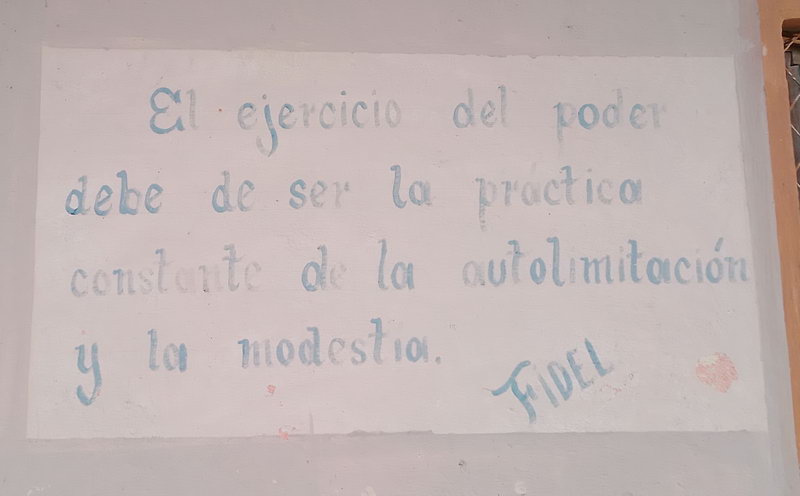 El ejercicio del poder
debe de ser la práctica
constante de la autolimitación
y la modestia.
FIDEL